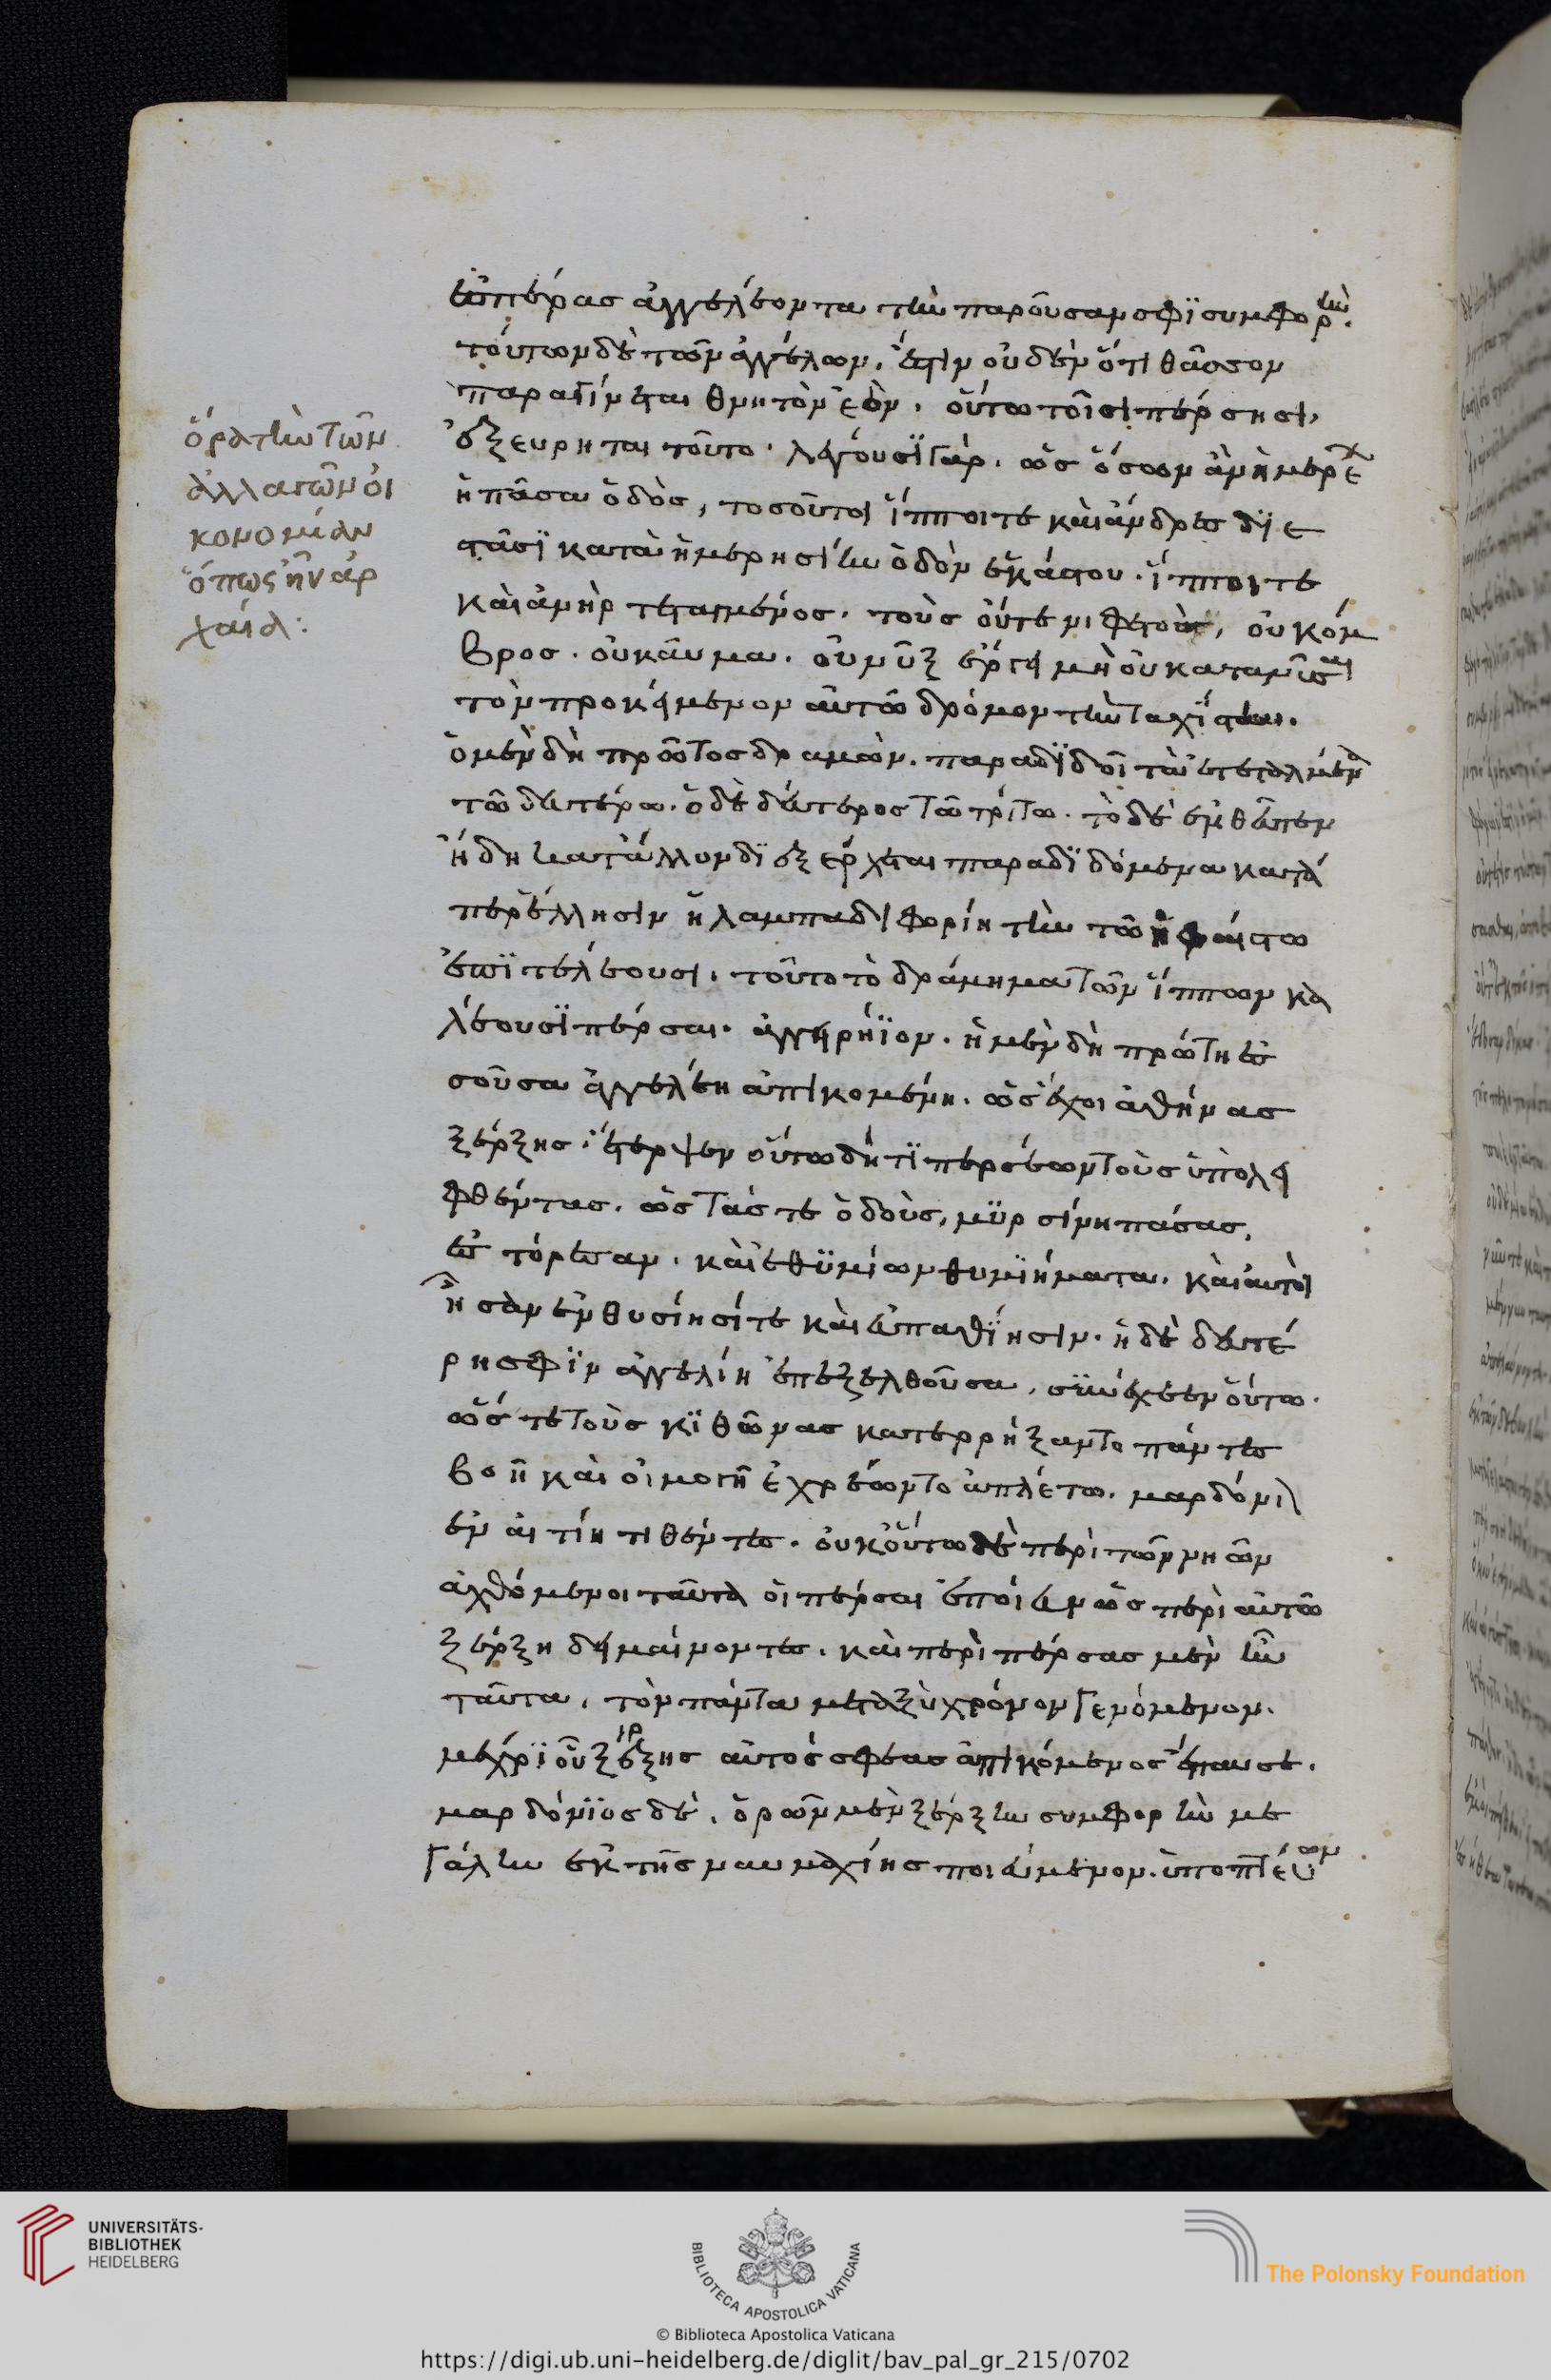 ἐς πέρσας ἀγγελέοντα τὴν παροῦσαν σφϊ συμφορήν.
τούτων δὲ τῶν ἀγγέλων. ἔστιν οὐδὲν ὅτι θᾶσσον
παραγίνεται θνητὸν ἐὸν. οὕτω τοῖσι πέρσησι.
ἐξεύρηται τοῦτο. λέγουσϊ γὰρ. ὡς ὅσων ἂν ἡμερέ
ἡ πᾶσα ὁδὸς, τοσοῦτοι ἵπποι τε καὶ ἄνδρες δϊε
στᾶσϊ κατὰ ἡμερησίην ὁδὸν ἑκάστου. ἵπποι τε
καὶ ἀνὴρ τεταγμένος. τοὺς οὔτε νιφετὸς, οὐκ ὄμ
βρος. οὐ καῦμα. οὐ νὺξ ἔργει μὴ οὐ κατανῦσαι
τὸν προκείμενον αὐτῶ δρόμον τὴν ταχίστην.
ὁ μὲν δὴ πρῶτος δραμὼν. παραδϊδοῖ τὰ ἐντεταλμένα
τῶ δευτέρω. ὁ δὲ δεύτερος τῶ τρίτω. τὸ δὲ ἐνθεῦτεν
ἤδη κατ' ἄλλον δϊεξέρχεται παραδϊδόμενα κατά
περ ἕλλησιν ἡ λαμπαδηφορίη τὴν τῶ ἡφαίστω
ἐπϊτελέουσι. τοῦτο τὸ δράμημα τῶν ἵππων κα
λέουσϊ πέρσαι. ἀγγαρήϊον. ἡ μὲν δὴ πρώτη ἐς
σοῦσα ἀγγελίη ἀπικομένη. ὡς ἔχοι ἀθήνας
ξέρξης. ἔτερψεν οὕτω δή τϊ περσέων τοὺς ὑπολει
φθέντας. ὡς τάς τε ὁδοὺς, μϋρσίνη πάσας,
ἐστόρεσαν. καὶ ἐθϋμίων θυμϊήματα. καὶ αὐτοὶ
ἦσαν ἐν θυσίησί τε καὶ εὐπαθίησιν. ἡ δὲ δευτέ
ρη σφϊν ἀγγελίη ἐπεξελθοῦσα, συνέχεεν οὕτω.
ὥστε τοὺς κϊθῶνας κατερρήξαντο πάντες
βοῆ καὶ οἰμωγῆ ἐχρέωντο ἀπλέτω. μαρδόνι
ἐν αἰτίη τιθέντες. οὐκ οὕτω δὲ περὶ τῶν νηῶν
ἀχθόμενοι ταῦτα οἱ πέρσαι ἐποίευν ὡς περὶ αὐτῶ
ξέρξη δειμαίνοντες. καὶ περὶ πέρσας μὲν ἦν
ταῦτα, τὸν πάντα μεταξὺ χρόνον γενόμενον.
μέχρϊ οὗ ξέρξης αὐτός σφεας ἀπικόμενος ἔπαυσε.
μαρδόνϊος δὲ. ὁρῶν μὲν ξέρξην συμφορὴν με
γάλην ἐκ τῆς ναυμαχίης ποιεύμενον. ὑποπτεύων
ὅρα τὴν τῶν
ἀλλαγῶν οἰ
κονομίαν
ὅπως ἦν ἀρ
χαία:
UNIVERSITÄTS-
BIBLIOTHEK
HEIDELBERG
BIBLIOTECA APOSTOLICA VATICANA
© Biblioteca Apostolica Vaticana
The Polonsky Foundation
https://digi.ub.uni-heidelberg.de/diglit/bav_pal_gr_215/0702